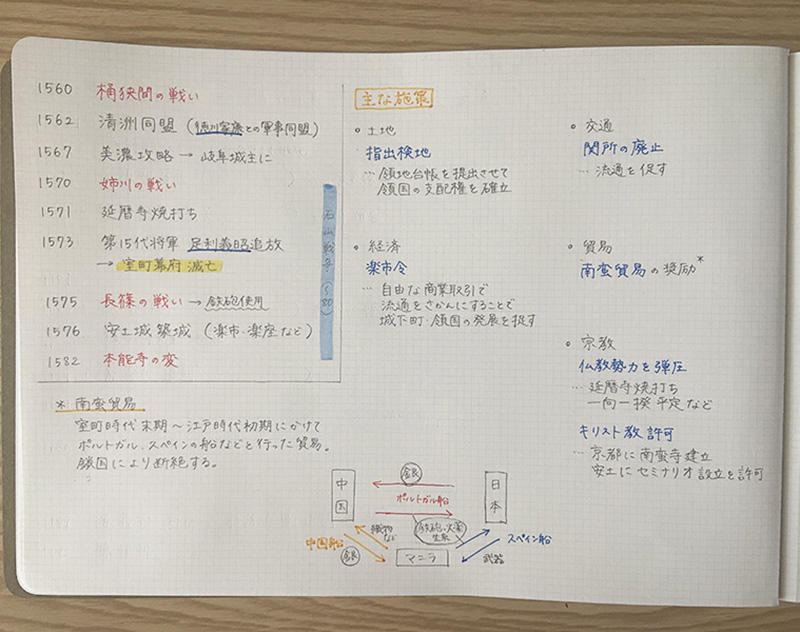 1560 桶狭間の戦い
1562 清洲同盟 (徳川家康との軍事同盟)
1567 美濃攻略 → 岐阜城主に
1570 姉川の戦い
1571 延暦寺焼打ち
1573 第15代将軍 足利義昭追放
→ 室町幕府 滅亡
1575 長篠の戦い → 鉄砲使用
1576 安土城 築城 (楽市・楽座など)
1582 本能寺の変
石山戦争 (〜80)
* 南蛮貿易
室町時代 末期 〜 江戸時代 初期にかけて
ポルトガル、スペインの船などと行った貿易。
鎖国により断絶する。
主な施策
○ 土地
指出検地
… 領地台帳を提出させて
領国の支配権を確立
○ 経済
楽市令
… 自由な商業取引で
流通をさかんにすることで
城下町・領国の発展を促す
○ 交通
関所の廃止
… 流通を促す
○ 貿易
南蛮貿易の奨励*
○ 宗教
仏教勢力を弾圧
… 延暦寺焼打ち
一向一揆 平定など
キリスト教 許可
… 京都に南蛮寺建立
安土にセミナリオ設立を許可
中国
銀
ポルトガル船
日本
織物など
鉄砲・火薬
生糸
中国船
銀
マニラ
スペイン船
武器